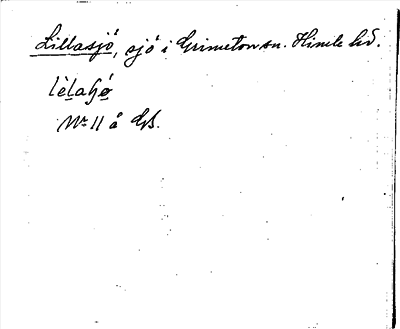 Lillasjö, sjö i Grimeton sn. Himle hd.
lèlaʃó
Nr 11 å GS.